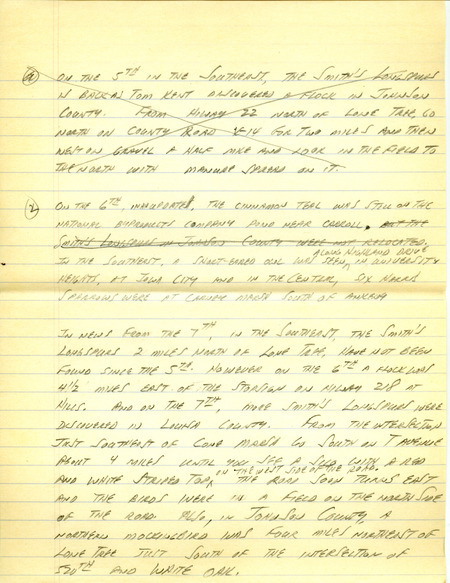 ① ON THE 5TH IN THE SOUTHEAST, THE SMITH'S LONGSPURS
IS BACK AS TOM KENT DISCOVERED A FLOCK IN JOHNSON
COUNTY. FROM HIWAY 22 NORTH OF LONE TREE, GO
NORTH ON COUNTY ROAD X-14 FOR TWO MILES AND THEN
WEST ON GRAVEL A HALF MILE AND LOOK IN THE FIELD TO
THE NORTH WITH MANURE SPREAD ON IT.
② ON THE 6TH, THE CINNAMON TEAL WAS STILL ON THE
NATIONAL BYPRODUCTS COMPANY POND NEAR CARROLL, BUT THE
SMITH'S LONGSPURS IN JOHNSON COUNTY WERE NOT RELOCATED.
IN THE SOUTHEAST, A SHORT-EARED OWL WAS SEEN ALONG HIGHLAND DRIVE IN UNIVERSITY
HEIGHTS, AT IOWA CITY AND IN THE CENTER, SIX HARRIS
SPARROWS WERE AT CARNEY MARSH SOUTH OF ANKENY
IN NEWS FROM THE 7TH, IN THE SOUTHEAST, THE SMITH'S
LONGSPURS 2 MILES NORTH OF LONE TREE, HAVE NOT BEEN
FOUND SINCE THE 5TH. HOWEVER ON THE 6TH A FLOCK WAS
4 1/2 MILES EAST OF THE STOPSIGN ON HIWAY 218 AT
HILLS. AND ON THE 7TH, MORE SMITH'S LONGSPURS WERE
DISCOVERED IN LOUISA COUNTY. FROM THE INTERSECTION
JUST SOUTHEAST OF CONE MARSH GO SOUTH ON T AVENUE
ABOUT 4 MILES UNTIL YOU SEE A SILO WITH A RED
AND WHITE STRIPED TOP ON THE WEST SIDE OF THE ROAD. THE ROAD SOON TURNS EAST
AND THE BIRDS WERE IN A FIELD ON THE NORTH SIDE
OF THE ROAD. ALSO, IN JOHNSON COUNTY, A
NORTHERN MOCKINGBIRD WAS FOUR MILES NORTHEAST OF
LONE TREE JUST SOUTH OF THE INTERSECTION OF
520TH AND WHITE OAK.